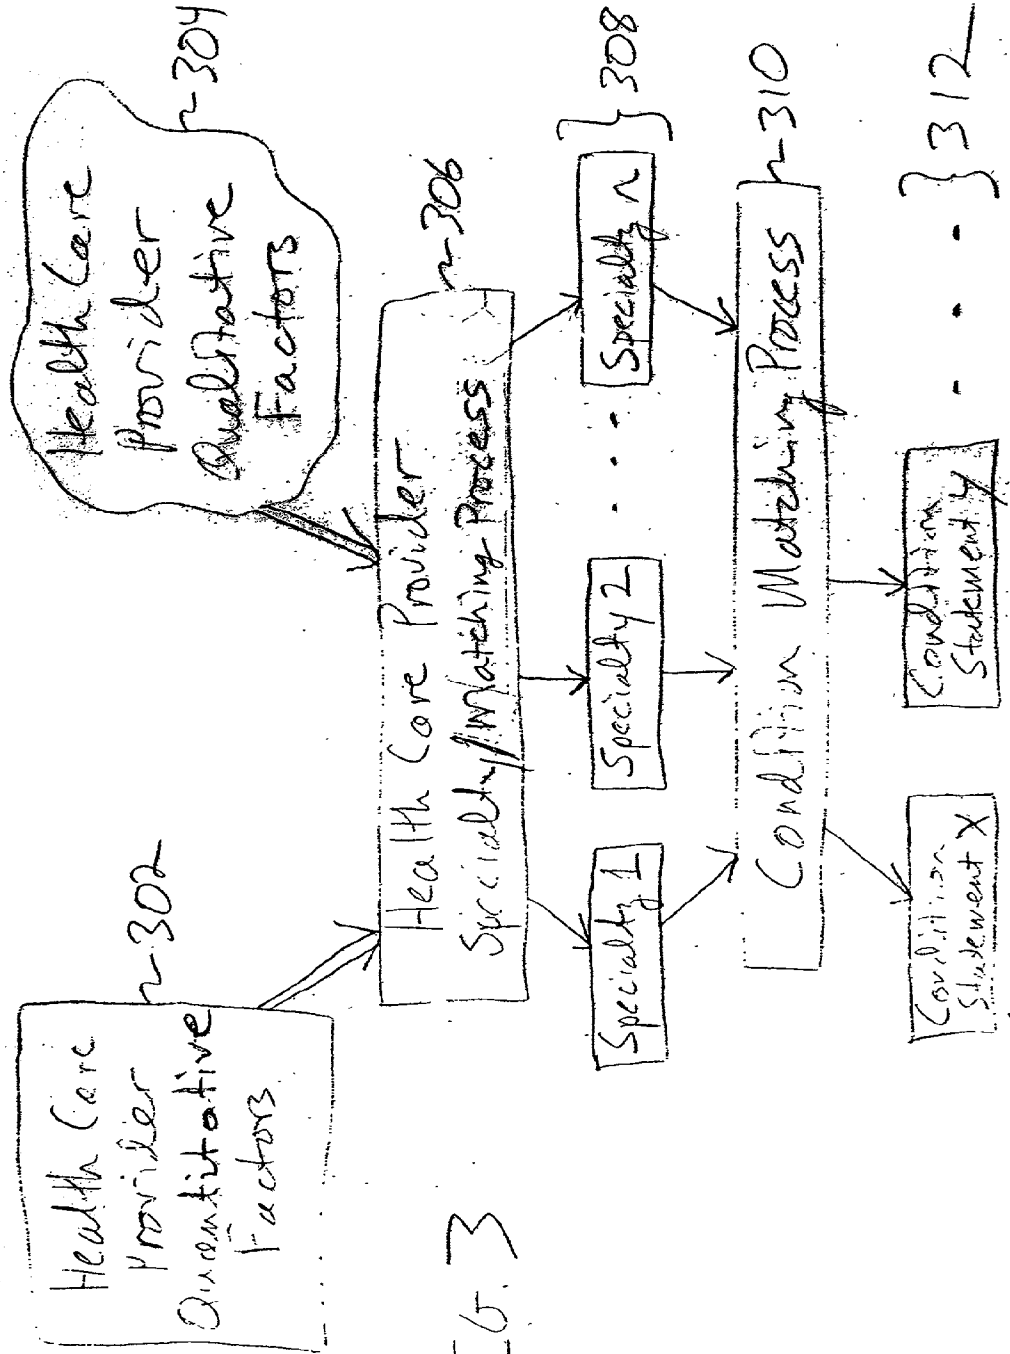 Health Care
Provider
Quantitative
Factors
~302
Health Care
Provider
Qualitative
Factors
~304
Health Care Provider
Specialty/Matching Process
~306
Specialty 1
Specialty 2
. . .
Specialty n
} 308
Condition Matching Process
~310
Condition
Statement X
Condition
Statement Y
. . . .
} 312
IG. 3